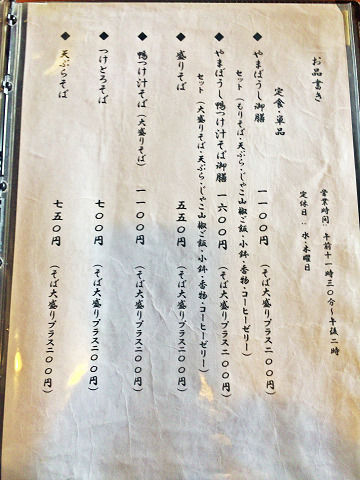 お品書き
営業時間：午前十一時三〇分～午後二時
定休日：水・木曜日
定食・単品
◆ やまぼうし御膳 一一〇〇円 （そば大盛りプラス二〇〇円）
セット（もりそば・天ぷら・じゃこ山椒ご飯・小鉢・香物・コーヒーゼリー）
◆ やまぼうし鴨つけ汁そば御膳 一六〇〇円 （そば大盛りプラス二〇〇円）
セット（大盛りそば・天ぷら・じゃこ山椒ご飯・小鉢・香物・コーヒーゼリー）
◆ 盛りそば 五五〇円 （そば大盛りプラス二〇〇円）
◆ 鴨つけ汁そば（大盛りそば） 一一〇〇円 （そば大盛りプラス二〇〇円）
◆ つけとろそば 七〇〇円 （そば大盛りプラス二〇〇円）
◆ 天ぷらそば 七五〇円 （そば大盛りプラス二〇〇円）